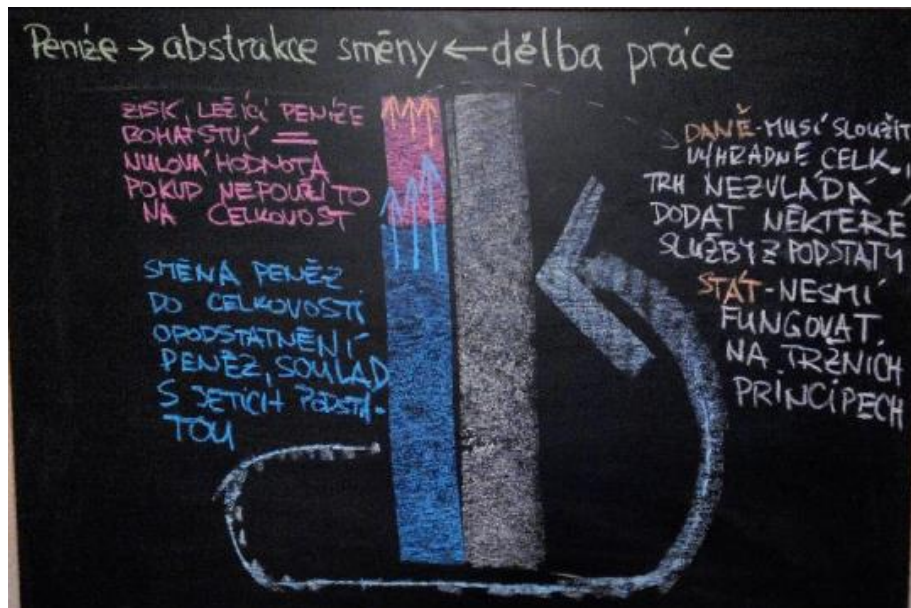 Peníze → abstrakce směny ← dělba práce
ZISK, LEŽÍCÍ PENÍZE
BOHATSTVÍ =
NULOVÁ HODNOTA
POKUD NEPOUŽITO
NA CELKOVOST
SMĚNA PENĚZ
DO CELKOVOSTI
OPODSTATNĚNÍ
PENĚZ, SOULAD
S JEJICH PODSTA-
TOU
DANĚ - MUSÍ SLOUŽIT
VÝHRADNĚ CELK.,
TRH NEZVLÁDÁ
DODAT NĚKTERÉ
SLUŽBY Z PODSTATY
STÁT - NESMÍ
FUNGOVAT
NA TRŽNÍCH
PRINCIPECH